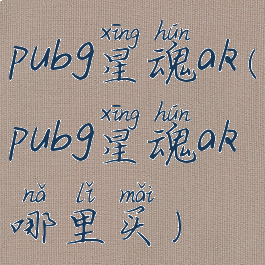 xīng hún
pubg星魂ak(
xīng hún
pubg星魂ak
nǎ lǐ mǎi
哪里买)